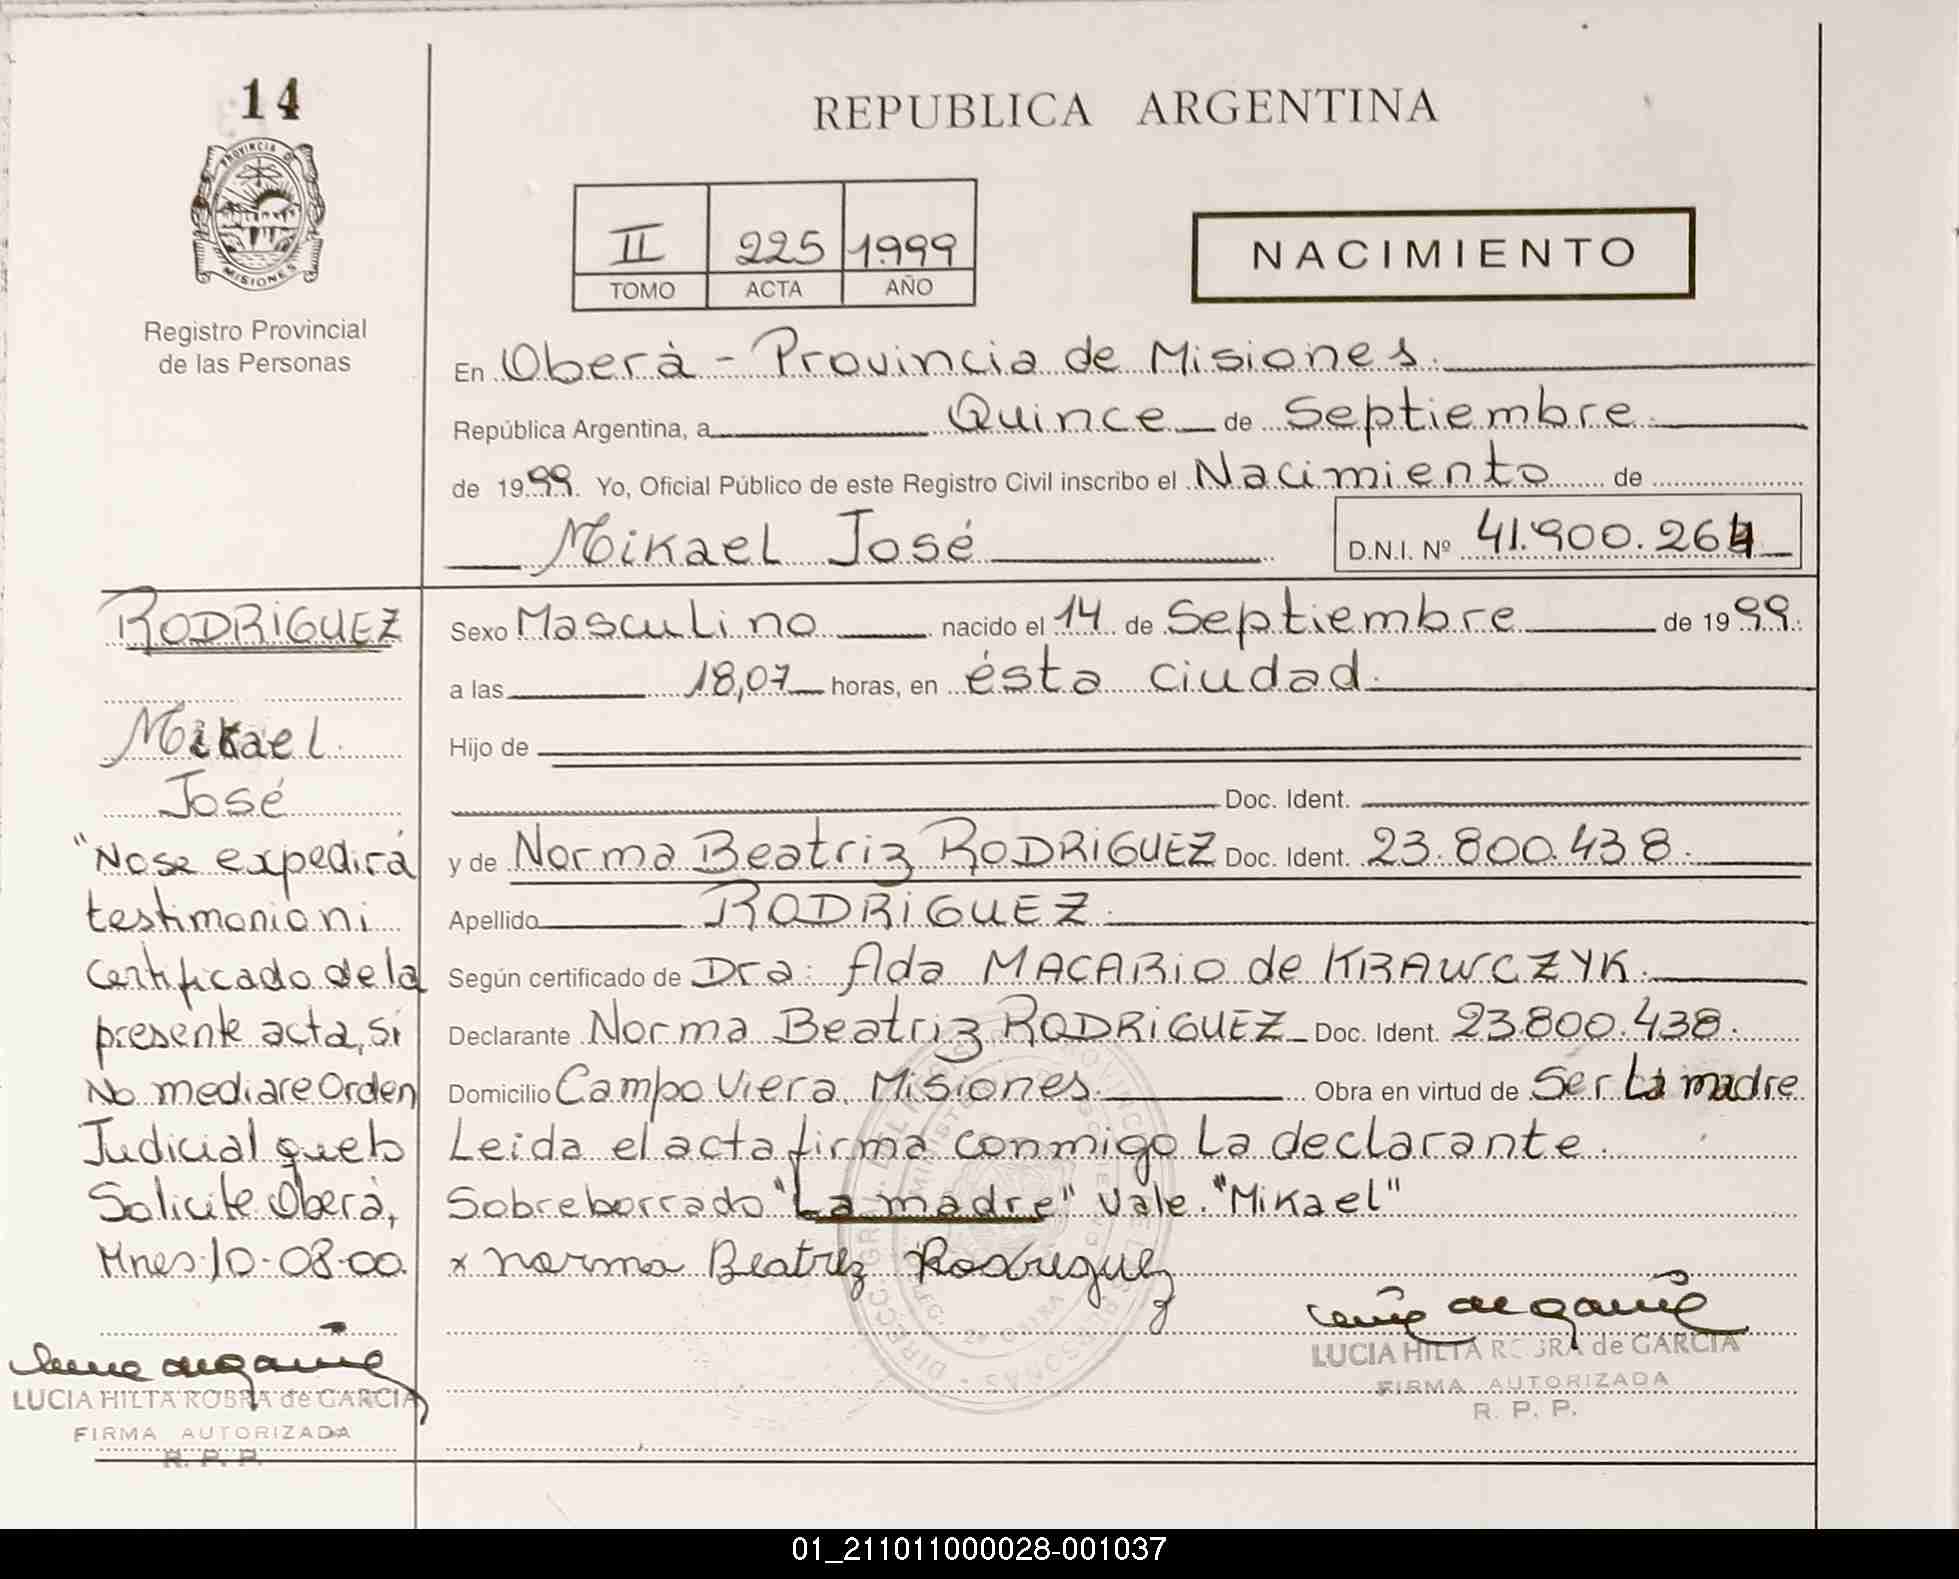 14
PROVINCIA DE
MISIONES
Registro Provincial
de las Personas
REPUBLICA ARGENTINA
II 225 1999
TOMO ACTA AÑO
NACIMIENTO
En Oberà - Provincia de Misiones.
República Argentina, a Quince de Septiembre
de 1999. Yo, Oficial Público de este Registro Civil inscribo el Nacimiento de
Mikael José D.N.I. Nº 41.900.264
RODRIGUEZ
Mikael
José
"No se expedirá
testimonio ni
Certificado de la
presente acta, si
No mediare Orden
Judicial que lo
Solicite Oberà,
Mnes. 10-08-00.
LUCIA HILTA ROBRA de GARCIA
FIRMA AUTORIZADA
R. P. P.
Sexo Masculino nacido el 14 de Septiembre de 1999.
a las 18,07 horas, en ésta ciudad.
Hijo de
Doc. Ident.
y de Norma Beatriz RODRIGUEZ Doc. Ident. 23.800.438.
Apellido RODRIGUEZ.
Según certificado de Dra: Ada MACARIO de KRAWCZYK.
Declarante Norma Beatriz RODRIGUEZ Doc. Ident. 23.800.438.
Domicilio Campo Viera, Misiones. Obra en virtud de Ser La madre
Leida el acta firma conmigo La declarante.
Sobreborrado "La madre" Vale. "Mikael"
x Norma Beatriz Rodriguez
LUCIA HILTA ROBRA de GARCIA
FIRMA AUTORIZADA
R. P. P.
01_211011000028-001037